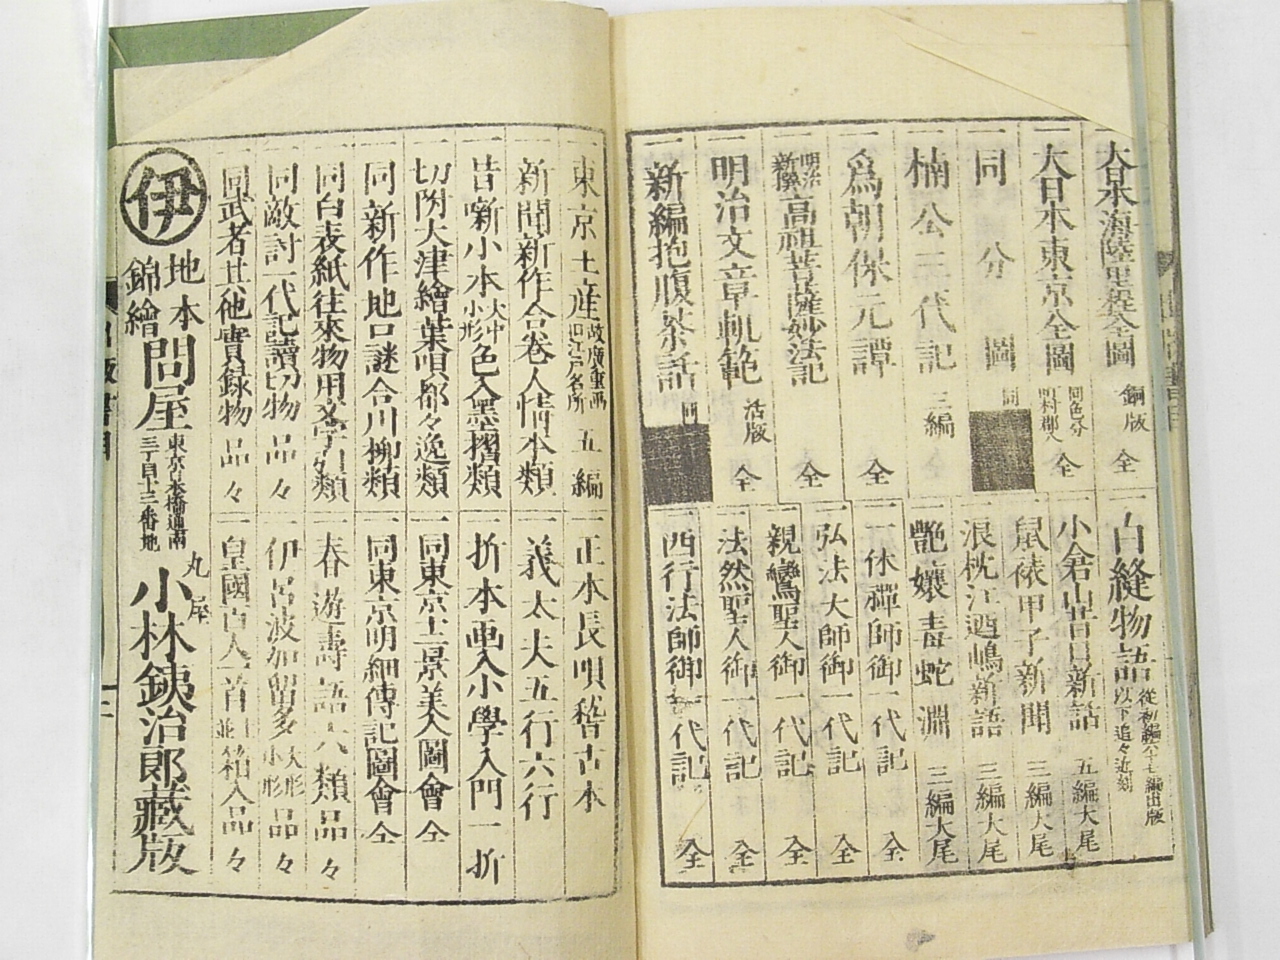 一大日本海陸里程全圖 銅版 全
一大日本東京全圖 同色分 町村郡入 全
一同 分圖 同
一楠公三代記 三編
一爲朝保元譚 全
一明治新撰高祖菩薩妙法記 全
一明治文章軌範 活版 全
一新編抱腹茶話 同
一白縫物語 從初編六十七編出版 以下追々近刻
一小倉山昔日新話 五編大尾
一鼠裱甲子新聞 三編大尾
一浪枕江迺嶋新語 三編大尾
一艶孃毒蛇淵 三編大尾
一一休禪師御一代記 全
一弘法大師御一代記 全
一親鸞聖人御一代記 全
一法然聖人御一代記 全
一西行法師御一代記 全
一東京土産 故廣重画 旧江戸名所 五編
一新聞新作合卷人情本類
一昔噺小本 大中小形 色入墨摺類
一切附大津繪葉唄都々逸類
一同新作地口謎合川柳類
一同白表紙往來物用文字引類
一同敵討一代記讀切物 品々
一同武者其他實録物 品々
一正本長唄稽古本
一義太夫五行六行
一折本画入小學入門一折
一同東京十二景美人圖會 全
一同東京明細傳記圖會 全
一春遊壽語六類品々
一伊呂波加留多 大形小形 品々
一皇國百人一首 並ニ箱入品々
伊
地本錦繪問屋
東京日本橋通油町
三丁目十三番地
丸屋
小林鐵治郎藏版